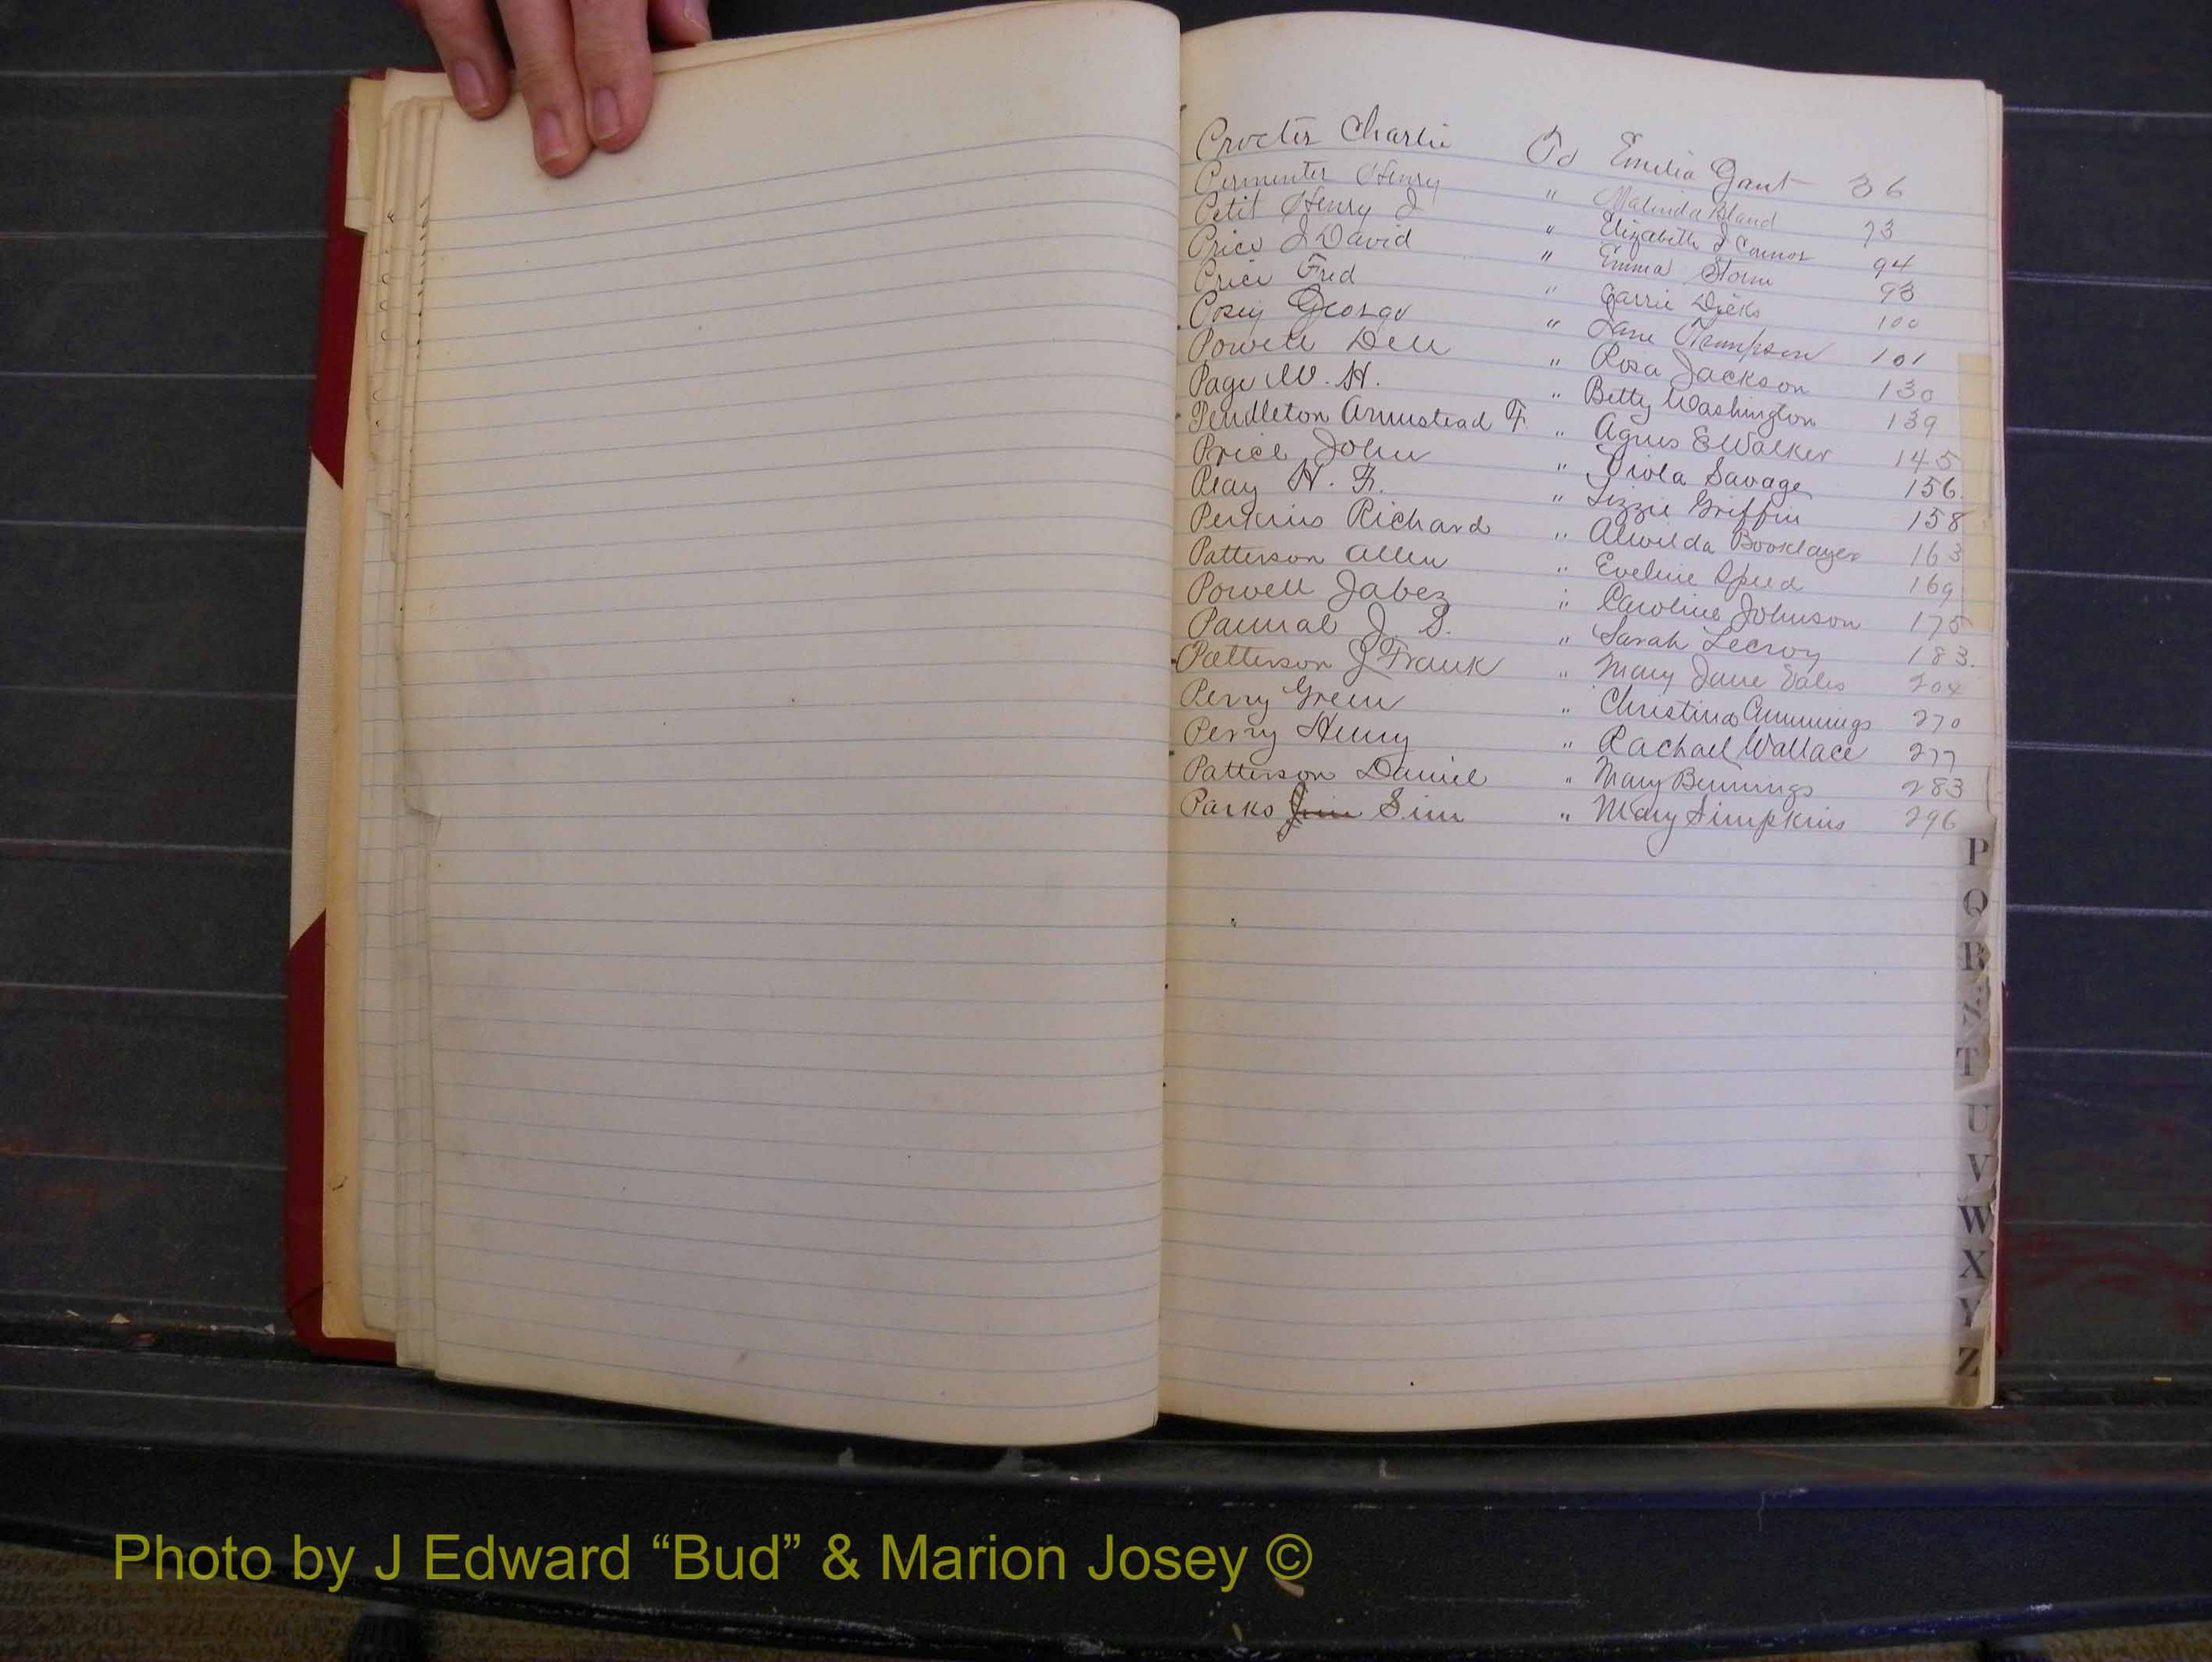 Procter Charlie To Emilia Gant 36
Permenter Henry " Malinda Bland 73
Petit Henry J " Elizabeth J Connor 94
Price J David " Emma Storm 93
Price Fred " Carrie Dicks 100
Posey George " Jane Thompson 101
Powell Dell " Rosa Jackson 130
Page W. H. " Betty Washington 139
Pendleton Armistead F. " Agnes E Walker 145
Price John " Viola Savage 156.
Peay H. F. " Lizzie Griffin 158
Perkins Richard " Alwilda Booklayer 163
Patterson Allen " Eveline Speed 169
Powell Jabez " Caroline Johnson 175
J S. " Sarah Lecroy 183.
Patterson J Frank " Mary Jane 204
Perry Green " Christina Cummings 270
Perry Henry " Rachael Wallace 277
Patterson Daniel " Mary Bennings 283
Parks Jim Sim " Mary Simpkins 296
P
Q
R
S
T
U
V
W
X
Y
Z
Photo by J Edward “Bud” & Marion Josey ©